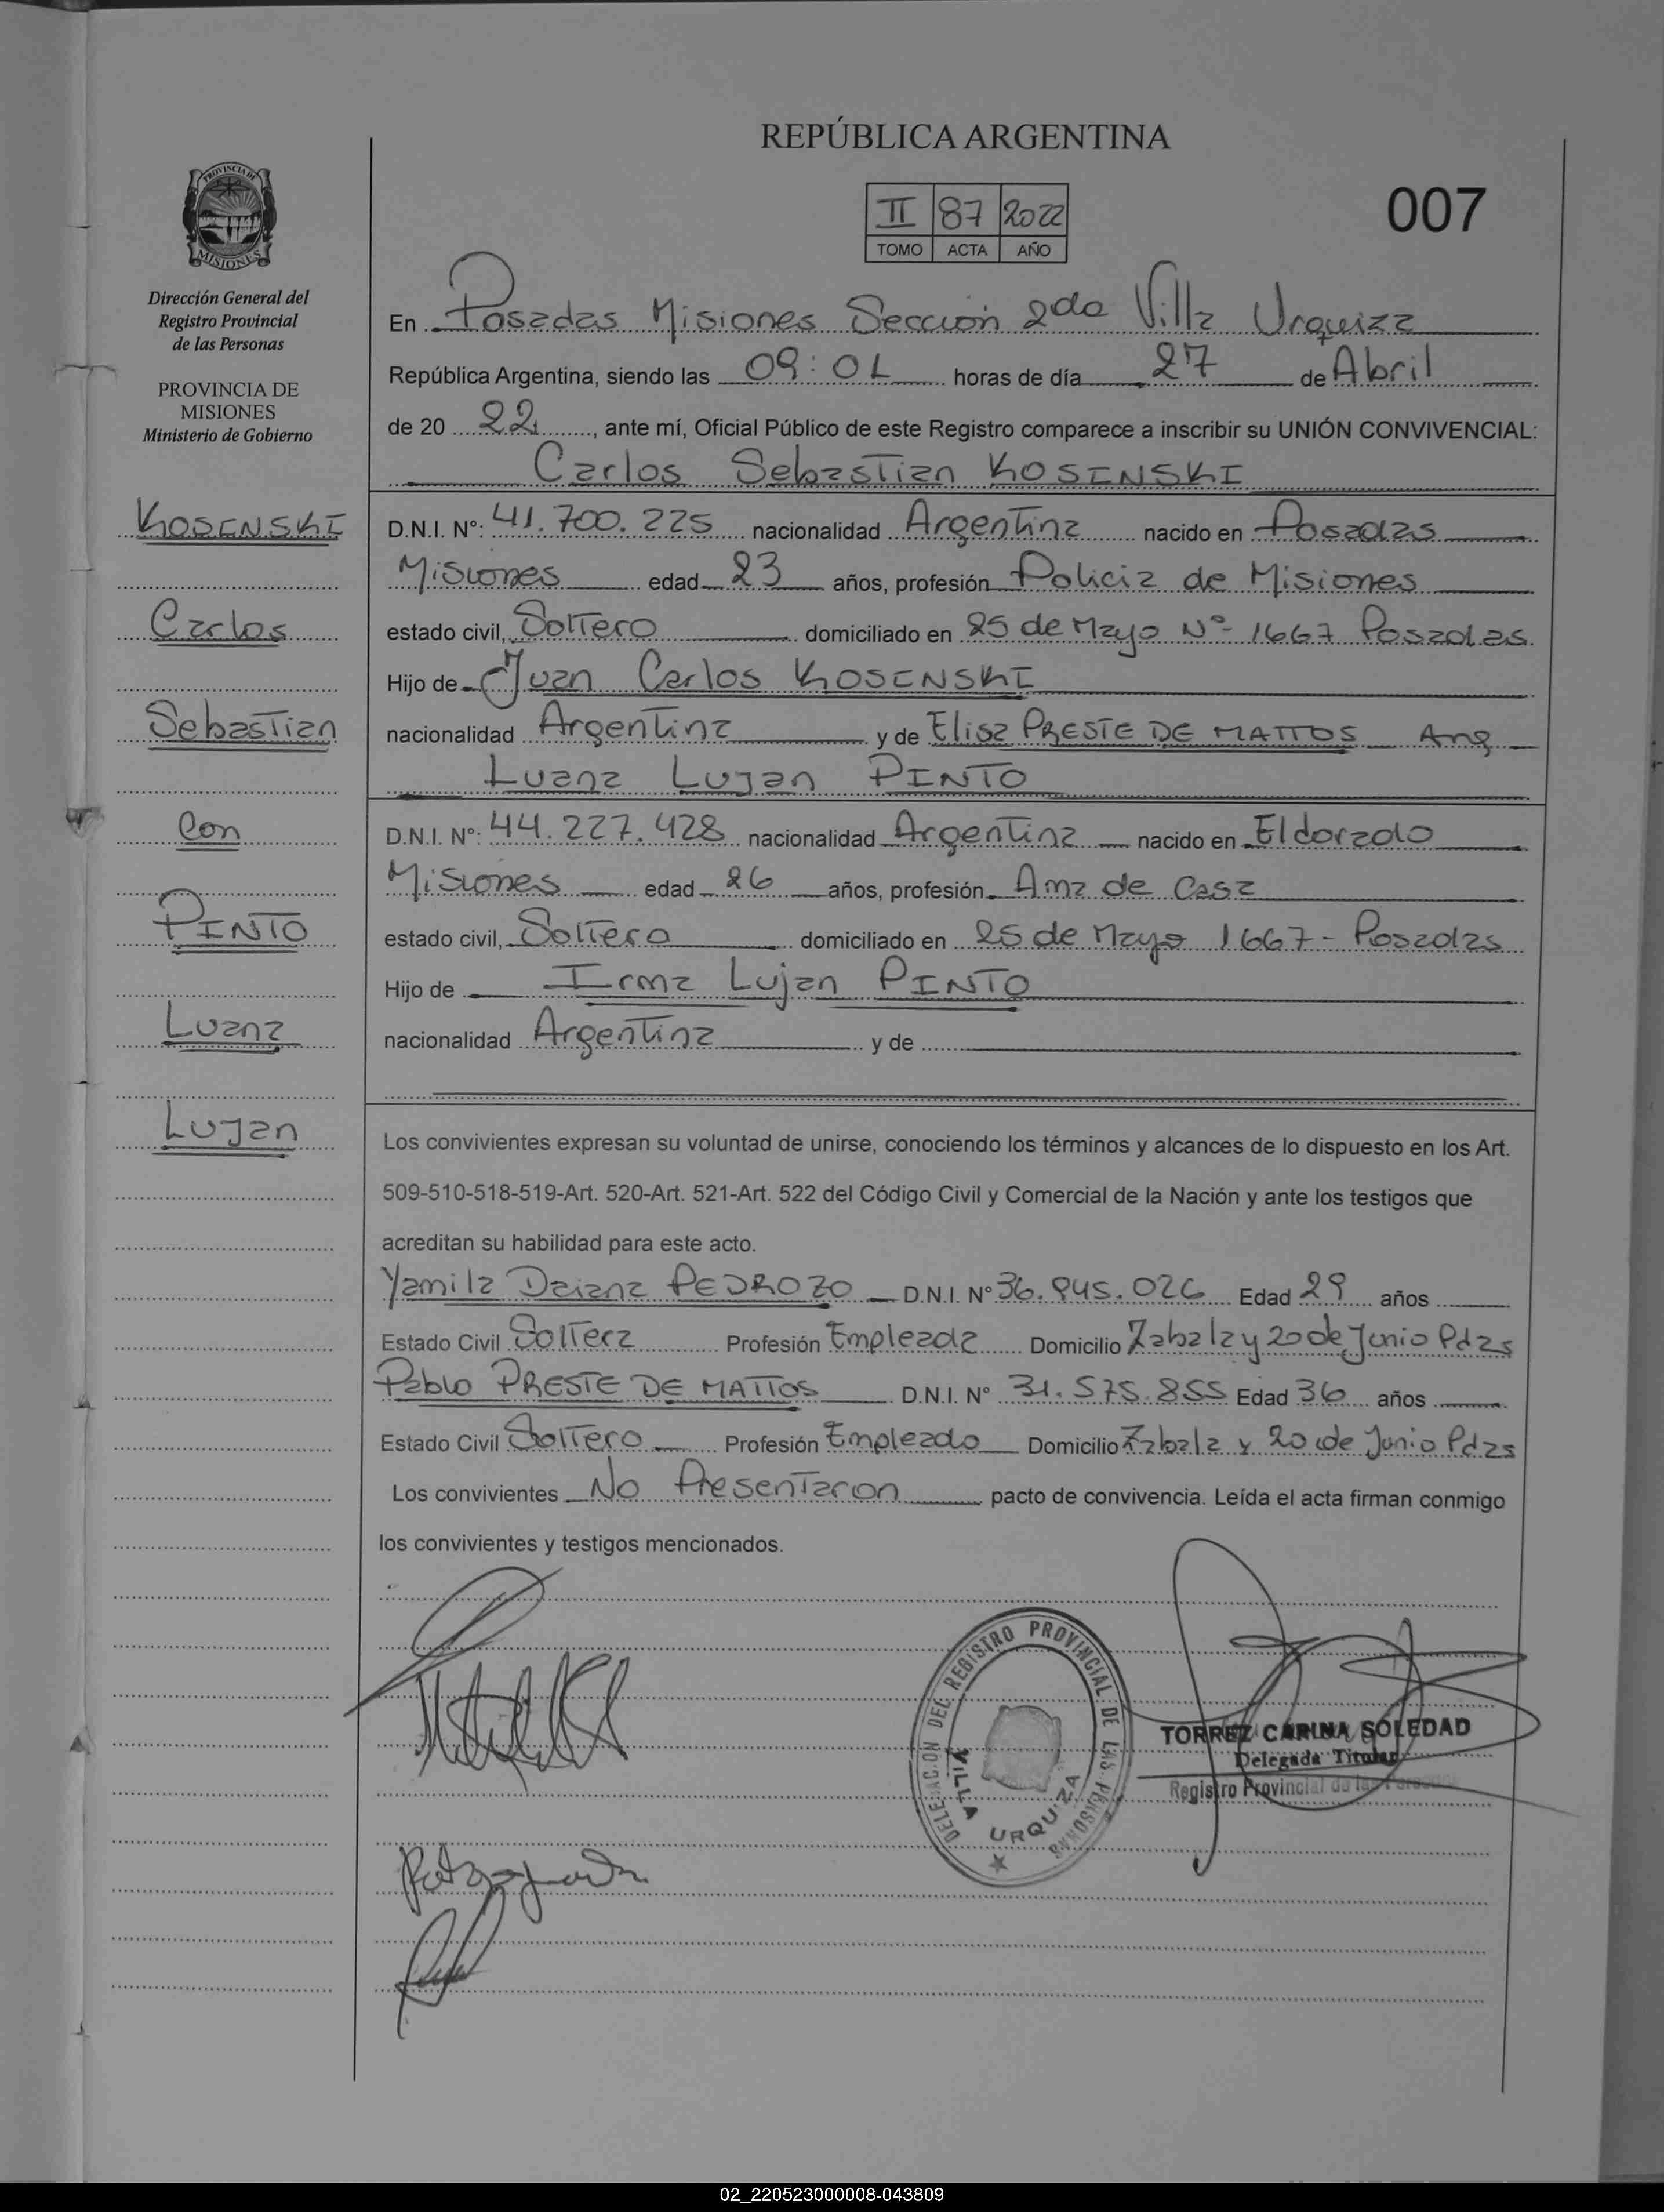 REPÚBLICA ARGENTINA
PROVINCIA DE
MISIONES
II 87 2022
TOMO ACTA AÑO
007
Dirección General del
Registro Provincial
de las Personas
PROVINCIA DE
MISIONES
Ministerio de Gobierno
KOSINSKI
Carlos
Sebastian
Con
PINTO
Luana
Lujan
En Posadas Misiones Sección 2da Villa Urquiza
República Argentina, siendo las 09:01 horas de día 27 de Abril
de 20 22, ante mí, Oficial Público de este Registro comparece a inscribir su UNIÓN CONVIVENCIAL:
Carlos Sebastian KOSINSKI
D.N.I. Nº: 41.700.225 nacionalidad Argentina nacido en Posadas
Misiones edad 23 años, profesión Policia de Misiones
estado civil, Soltero domiciliado en 25 de Mayo Nº 1667 Posadas
Hijo de Juan Carlos KOSINSKI
nacionalidad Argentina y de Elisa PRESTE DE MATTOS Arg
Luana Lujan PINTO
D.N.I. Nº: 44.227.428 nacionalidad Argentina nacido en Eldorado
Misiones edad 26 años, profesión Ama de Casa
estado civil, Soltera domiciliado en 25 de Mayo 1667 - Posadas
Hijo de Irma Lujan PINTO
nacionalidad Argentina y de
Los convivientes expresan su voluntad de unirse, conociendo los términos y alcances de lo dispuesto en los Art.
509-510-518-519-Art. 520-Art. 521-Art. 522 del Código Civil y Comercial de la Nación y ante los testigos que
acreditan su habilidad para este acto.
Yamila Daiana PEDROZO D.N.I. Nº 36.945.026 Edad 29 años
Estado Civil Soltera Profesión Empleada Domicilio Zabala y 20 de Junio Pdas
Pablo PRESTE DE MATTOS D.N.I. Nº 31.575.855 Edad 36 años
Estado Civil Soltero Profesión Empleado Domicilio Zabala y 20 de Junio Pdas
Los convivientes No Presentaron pacto de convivencia. Leída el acta firman conmigo
los convivientes y testigos mencionados.
DELEGACION DEL REGISTRO PROVINCIAL DE LAS PERSONAS
VILLA URQUIZA
TORREZ CARINA SOLEDAD
Delegada Titular
Registro Provincial de las Personas
02_220523000008-043809